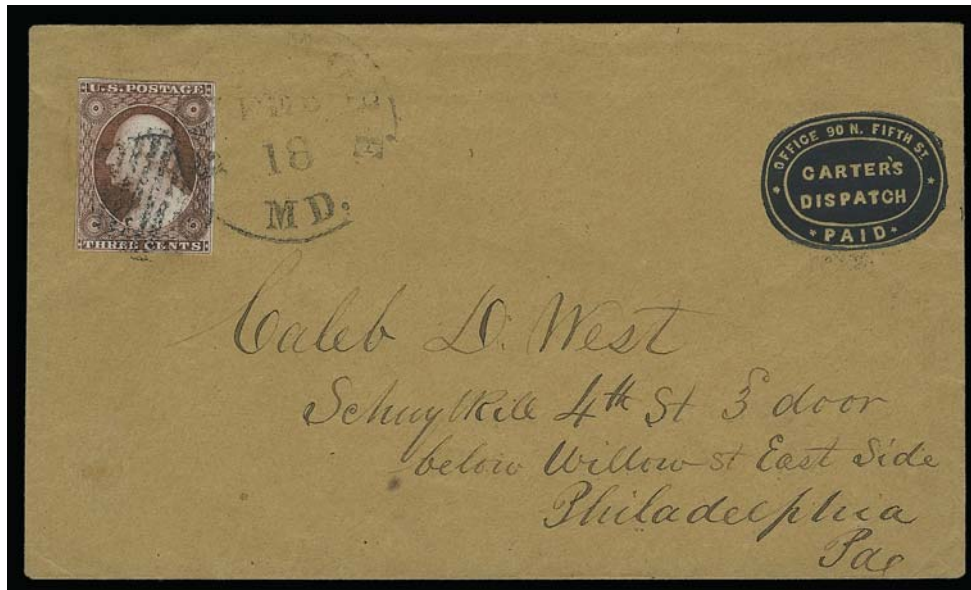 U.S. POSTAGE
THREE CENTS
18
MD.
OFFICE 90 N. FIFTH ST.
CARTER'S
DISPATCH
PAID
Caleb D. West
Schuylkill 4th St 3 door
below Willow st East Side
Philadelphia
Pae